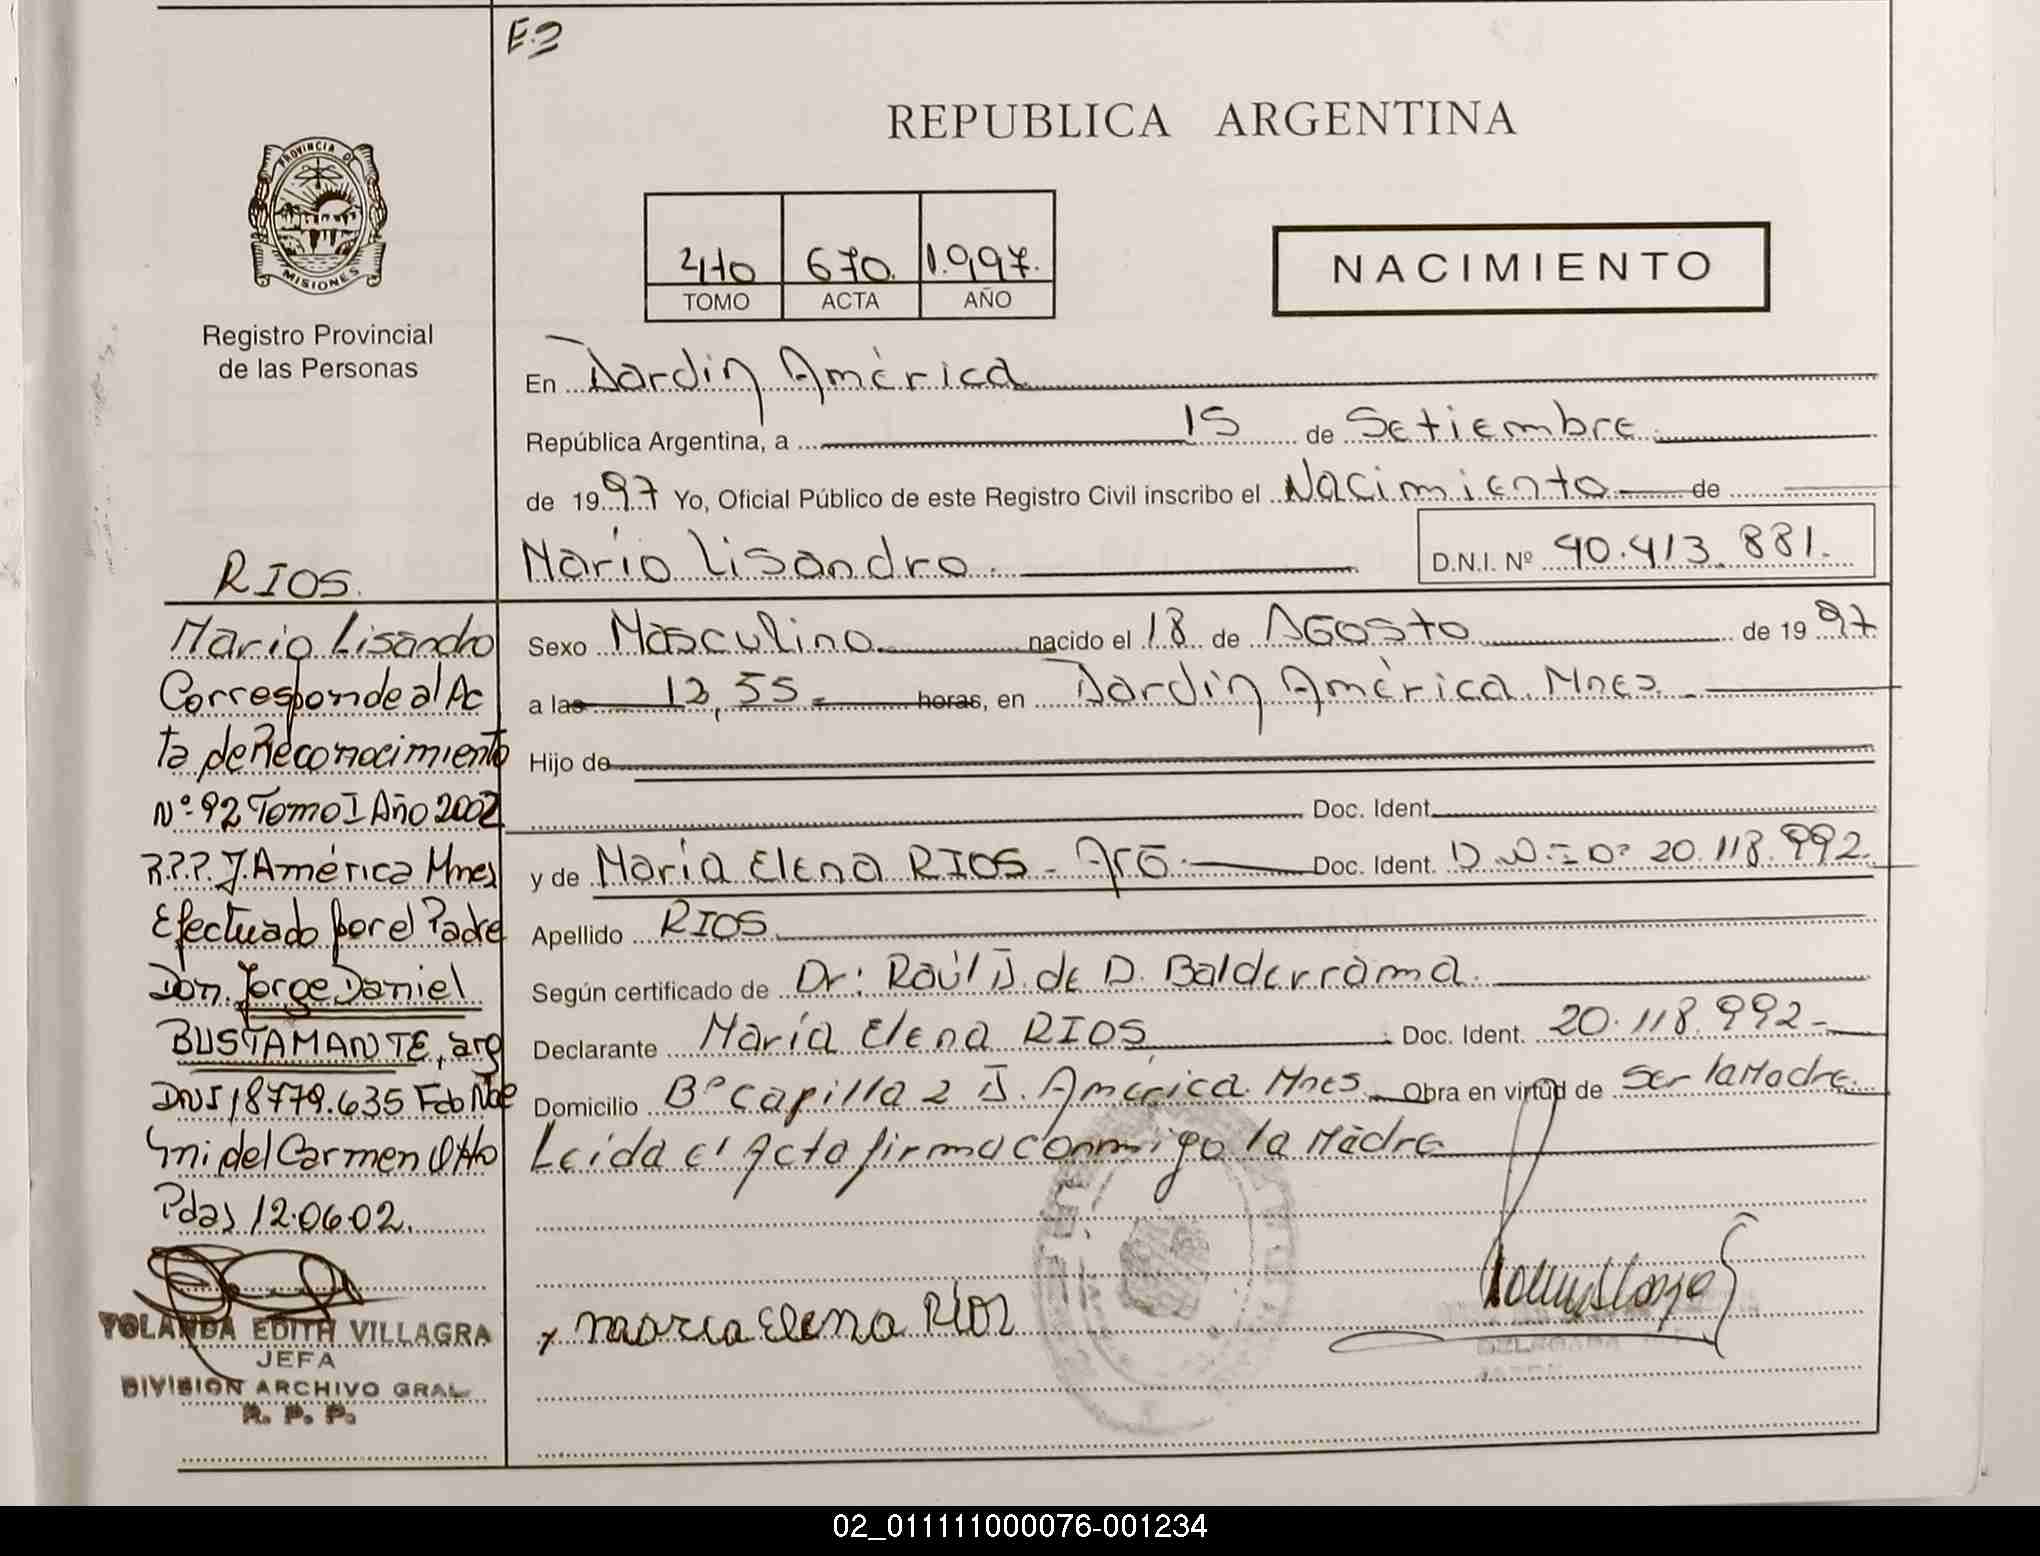 E.2
REPUBLICA ARGENTINA
PROVINCIA DE
MISIONES
Registro Provincial
de las Personas
670. 1.997.
TOMO ACTA AÑO
NACIMIENTO
En Jardín América
República Argentina, a 15 de Setiembre
de 1997 Yo, Oficial Público de este Registro Civil inscribo el Nacimiento de
Mario Lisandro. D.N.I. Nº 40.413.881.
Sexo Masculino nacido el 18 de AGosto de 1997
a las 12,55 horas, en Jardín América. Mnes.
Hijo de
Doc. Ident.
y de María Elena RIOS - Doc. Ident. 20.118.992.
Apellido RIOS
Según certificado de Dr: Raúl J. de D. Balderrama.
Declarante María Elena RIOS Doc. Ident. 20.118.992-
Domicilio Bº Capilla 2 J. América. Mnes. Obra en virtud de Ser la Madre.
Leída el Acta firma conmigo la Madre
x maria Elena Rios
RIOS.
Mario Lisandro
Corresponde al Ac
ta de Reconocimiento
Nº 92 Tomo I Año 2002
R.P.P. J. América Mnes
Efectuado por el Padre
Don. Jorge Daniel
BUSTAMANTE, arg
DNI 18779.635 Fdo
del Carmen Otto
Pdas 12.06.02.
YOLANDA EDITH VILLAGRA
JEFA
DIVISION ARCHIVO GRAL.
R. P. P.
DELEGADA
02_011111000076-001234